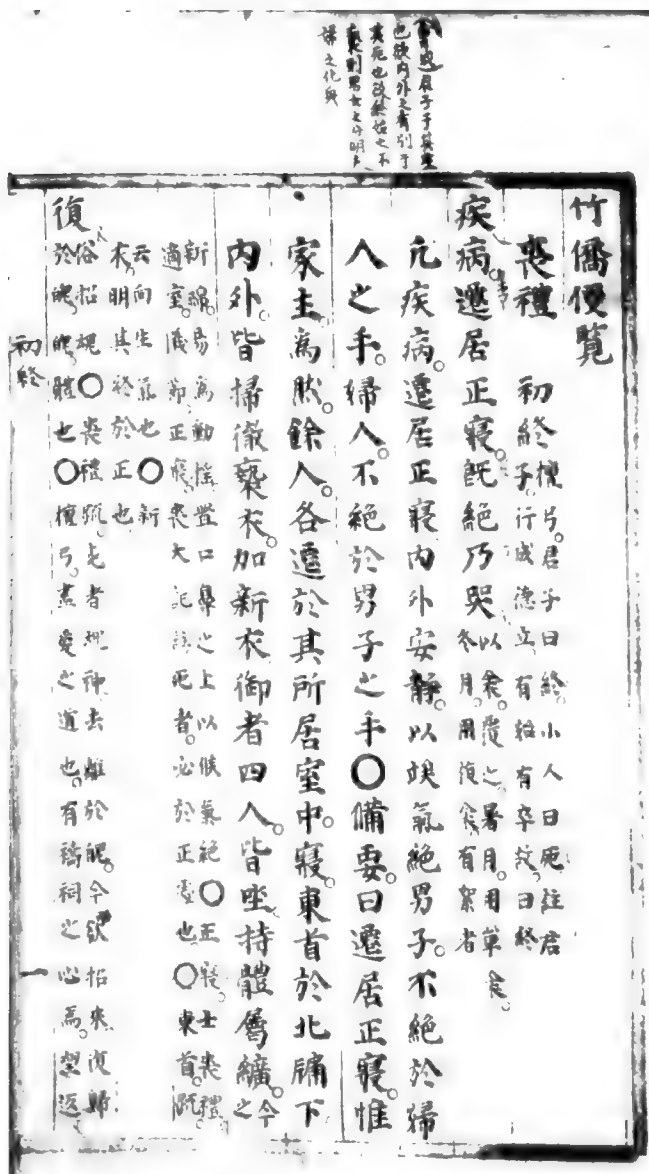 君子于其
也欲内外之有別于
其死也欲終始之不
褻則男女之分明夫
婦之化興
竹僑便覽
喪禮 初終
檀弓君子曰終小人曰死註君
子行成德立有始有卒故曰終
疾病遷居正寢旣絶乃哭
以衾覆之暑月用單衾
冬月用複衾有絮者
凡疾病遷居正寢内外安靜以竢氣絶男子不絶於婦
人之手婦人不絶於男子之手○備要曰遷居正寢惟
家主爲然餘人各遷於其所居室中寢東首於北牖下
内外皆掃徹褻衣加新衣御者四人皆坐持體屬纊
今之
新綿易爲動搖置口鼻之上以候氣絶○正寢士喪禮
適室儀節正寢喪大記註死者必於正處也○東首
云向生氣也○新
衣明其終於正也
復
俗招魂○喪禮死者魂神去離於魄今欲招來復歸
於魄魄體也○檀弓盡愛之道也有禱祠之心焉望返
初終
一